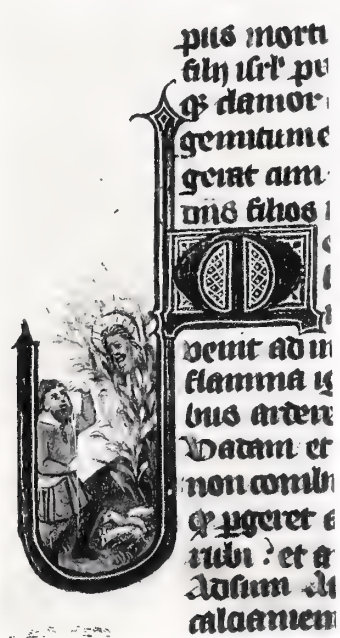 pus morti
filij isrl' pr
qȝ clamor
gemitum e
gerat cum
dñs filios
M
venit ad m
flamma ig
bus ardere
Vadam et
non comb
qȝ ꝑgeret a
rubi? et a
Adsum
calciamen